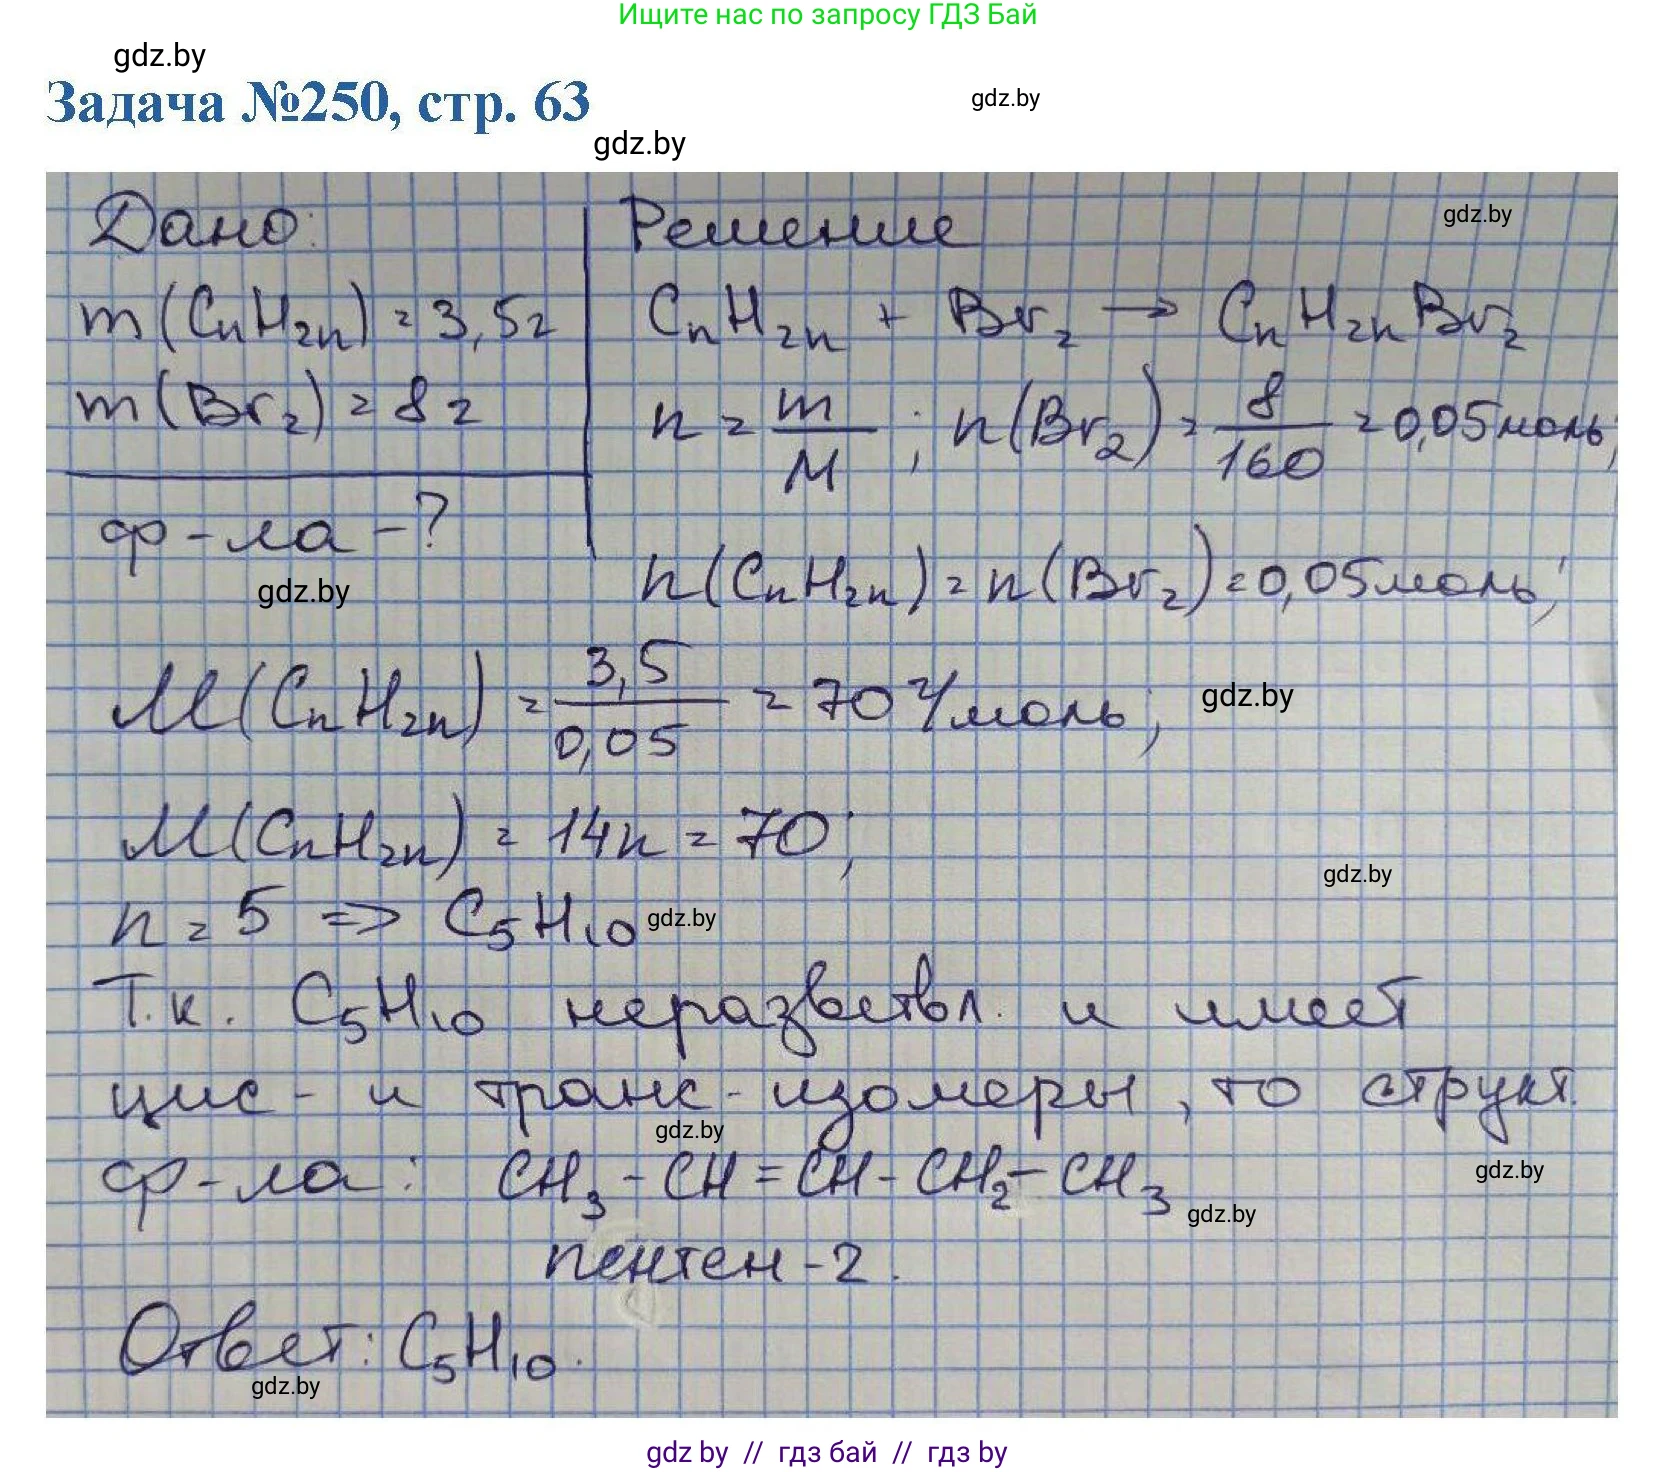 Ищите нас по запросу ГДЗ Бай
gdz.by
Задача №250, стр. 63
gdz.by
gdz.by
Дано: Решение
gdz.by
m(CnH2n) = 3,5г CnH2n + Br2 → CnH2nBr2
m(Br2) = 8г n = m/M ; n(Br2) = 8/160 = 0,05моль;
ф-ла - ?
gdz.by
n(CnH2n) = n(Br2) = 0,05моль;
M(CnH2n) = 3,5/0,05 = 70 г/моль; gdz.by
M(CnH2n) = 14n = 70;
gdz.by
n = 5 => C5H10 gdz.by
Т.к. C5H10 неразветвл. и имеет
цис- и транс-изомеры, то структ.
gdz.by
ф-ла: CH3 - CH = CH - CH2 - CH3
gdz.by
gdz.by
пентен-2.
Ответ: C5H10.
gdz.by
gdz by // гдз бай // гдз by